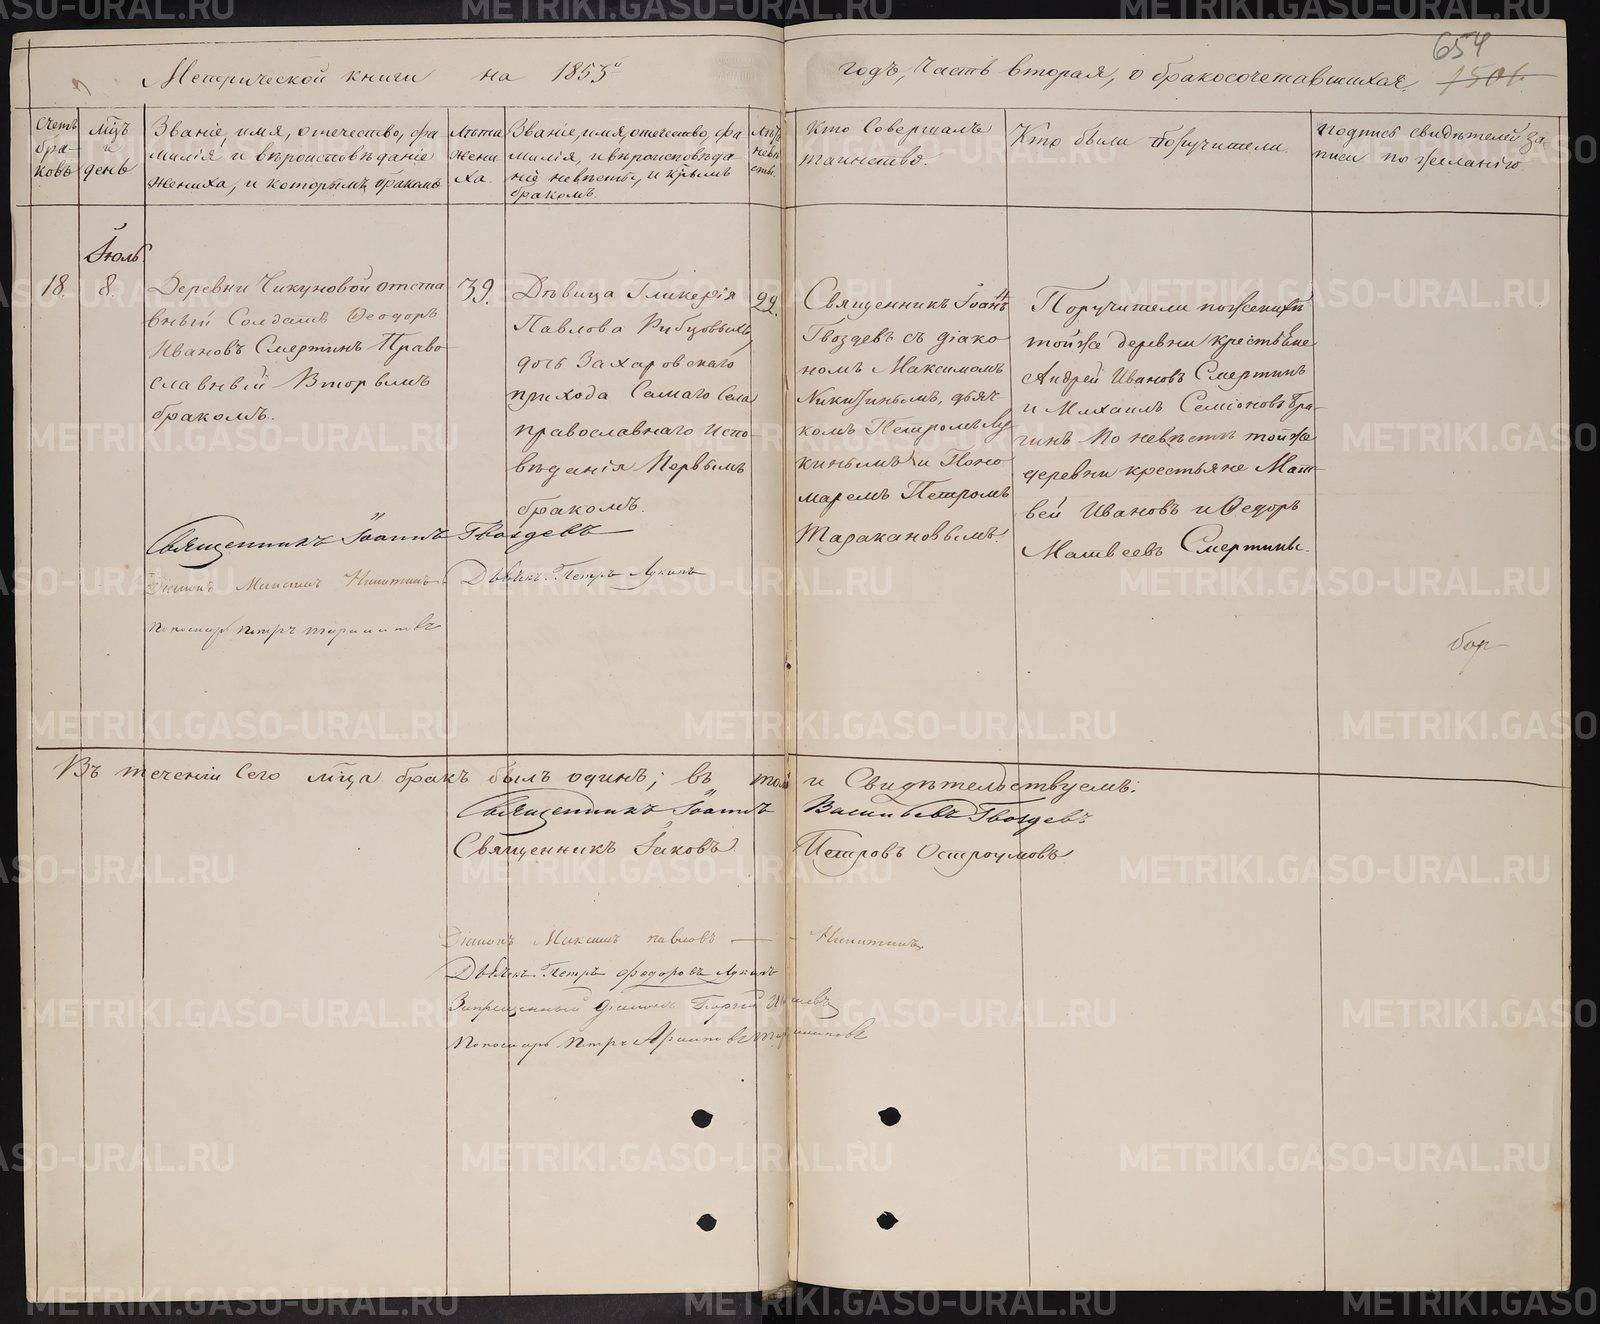 654
Метрической книги на 1853й годъ, Часть вторая, о бракосочетавшихся. 1501.
Счетъ браковъ
Мцъ и день
Званіе, имя, отечество, фа
милія, и вѣроисповѣданіе
жениха, и которымъ бракомъ
Лѣта
жени
ха.
Званіе, имя, отечество, фа
милія, и вѣроисповѣда
ніе невѣсты, и крымъ
бракомъ.
Лѣта
невѣ
сты.
Кто Совершалъ
таинство.
Кто были Поручители
Подпись свидѣтелей за
писи по желанію
Іюль
18.
8.
Деревни Чикуновой отста
вный Солдатъ Ѳеодоръ
Ивановъ Смертинъ Право
славный Вторымъ
бракомъ.
39.
Дѣвица Гликерія
Павлова Рибцовыхъ
дочь Захаровскаго
прихода Самаго Села
православнаго испо
вѣданія Первымъ
бракомъ.
22.
Священникъ Іоаннъ
Гвоздевъ съ діако
номъ Максимомъ
Никитинымъ, дьяч
комъ Петромъ Лу
кинымъ и Поно
маремъ Петромъ
Таракановымъ.
Поручители по женихѣ
той же деревни крестьяне
Андрей Ивановъ Смертинъ
и Михаилъ Семіоновъ Бра-
гинъ По невѣстѣ той же
деревни крестьяне Мат-
вей Ивановъ и Ѳедоръ
Матвеевъ Смертины.
Священникъ Іоаннъ Гвоздевъ
Діаконъ Максимъ Никитинъ
Дьячекъ Петръ Лукинъ
Пономарь Петръ Таракановъ
Въ теченіи Сего мца бракъ былъ одинъ; въ томъ и Свидѣтельствуемъ:
Священникъ Іоаннъ Васильевъ Гвоздевъ
Священникъ Іаковъ Петровъ Остроумовъ
Діаконъ Максимъ Павловъ — Никитинъ
Дьячекъ Петръ Федоровъ Лукинъ
Запрещенный діаконъ Георгій
Пономарь Петръ Таракановъ